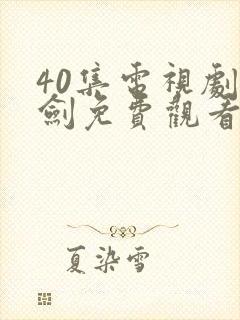 40集電視劇
劍免費觀看
夏染雪